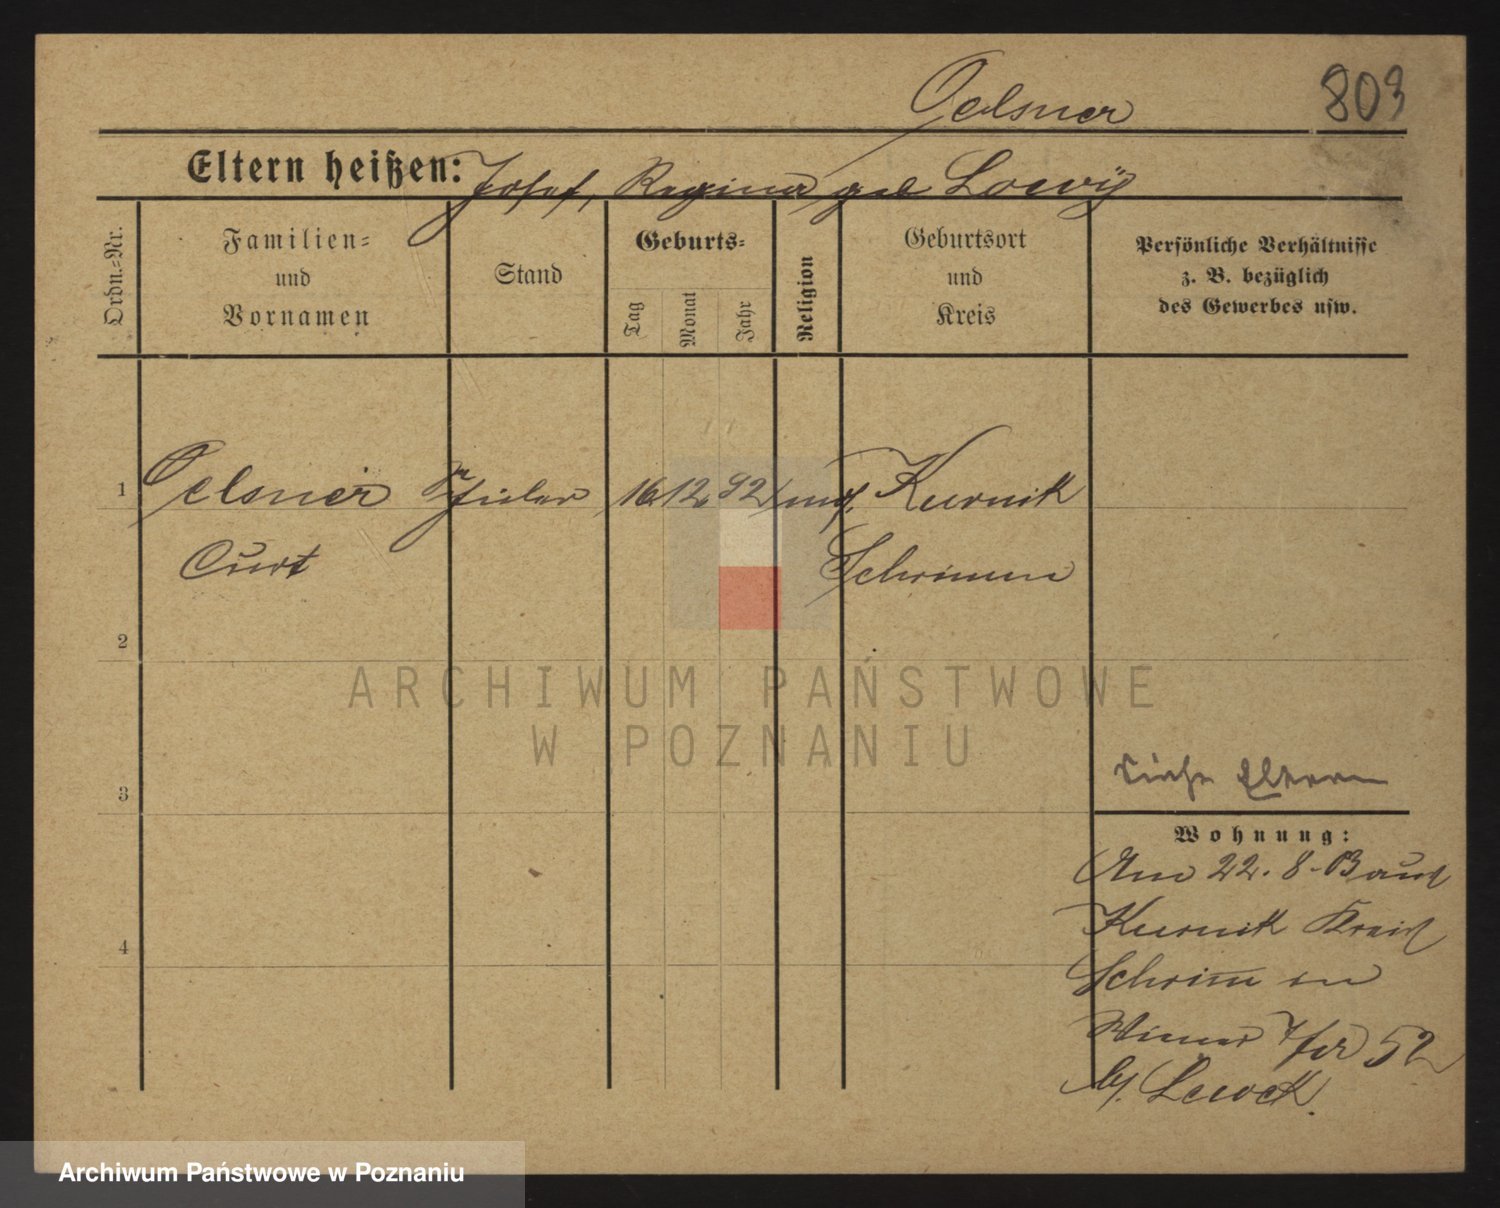 Oelsner 803
Eltern heißen: Josef, Regina geb Loewy
Ordn.-Nr.
Familien-
und
Vornamen
Stand
Geburts-
Tag
Monat
Jahr
Religion
Geburtsort
und
Kreis
Persönliche Verhältnisse
z. B. bezüglich
des Gewerbes usw.
1 Oelsner Schüler 16 12 92 mos. Kurnik
Curt Schrimm
2
3
4
Siehe Eltern
Wohnung:
Am 22. 8. 03 aus
Kurnik Kreis
Schrimm in
Wiener 52
b/.
ARCHIWUM PAŃSTWOWE
W POZNANIU
Archiwum Państwowe w Poznaniu